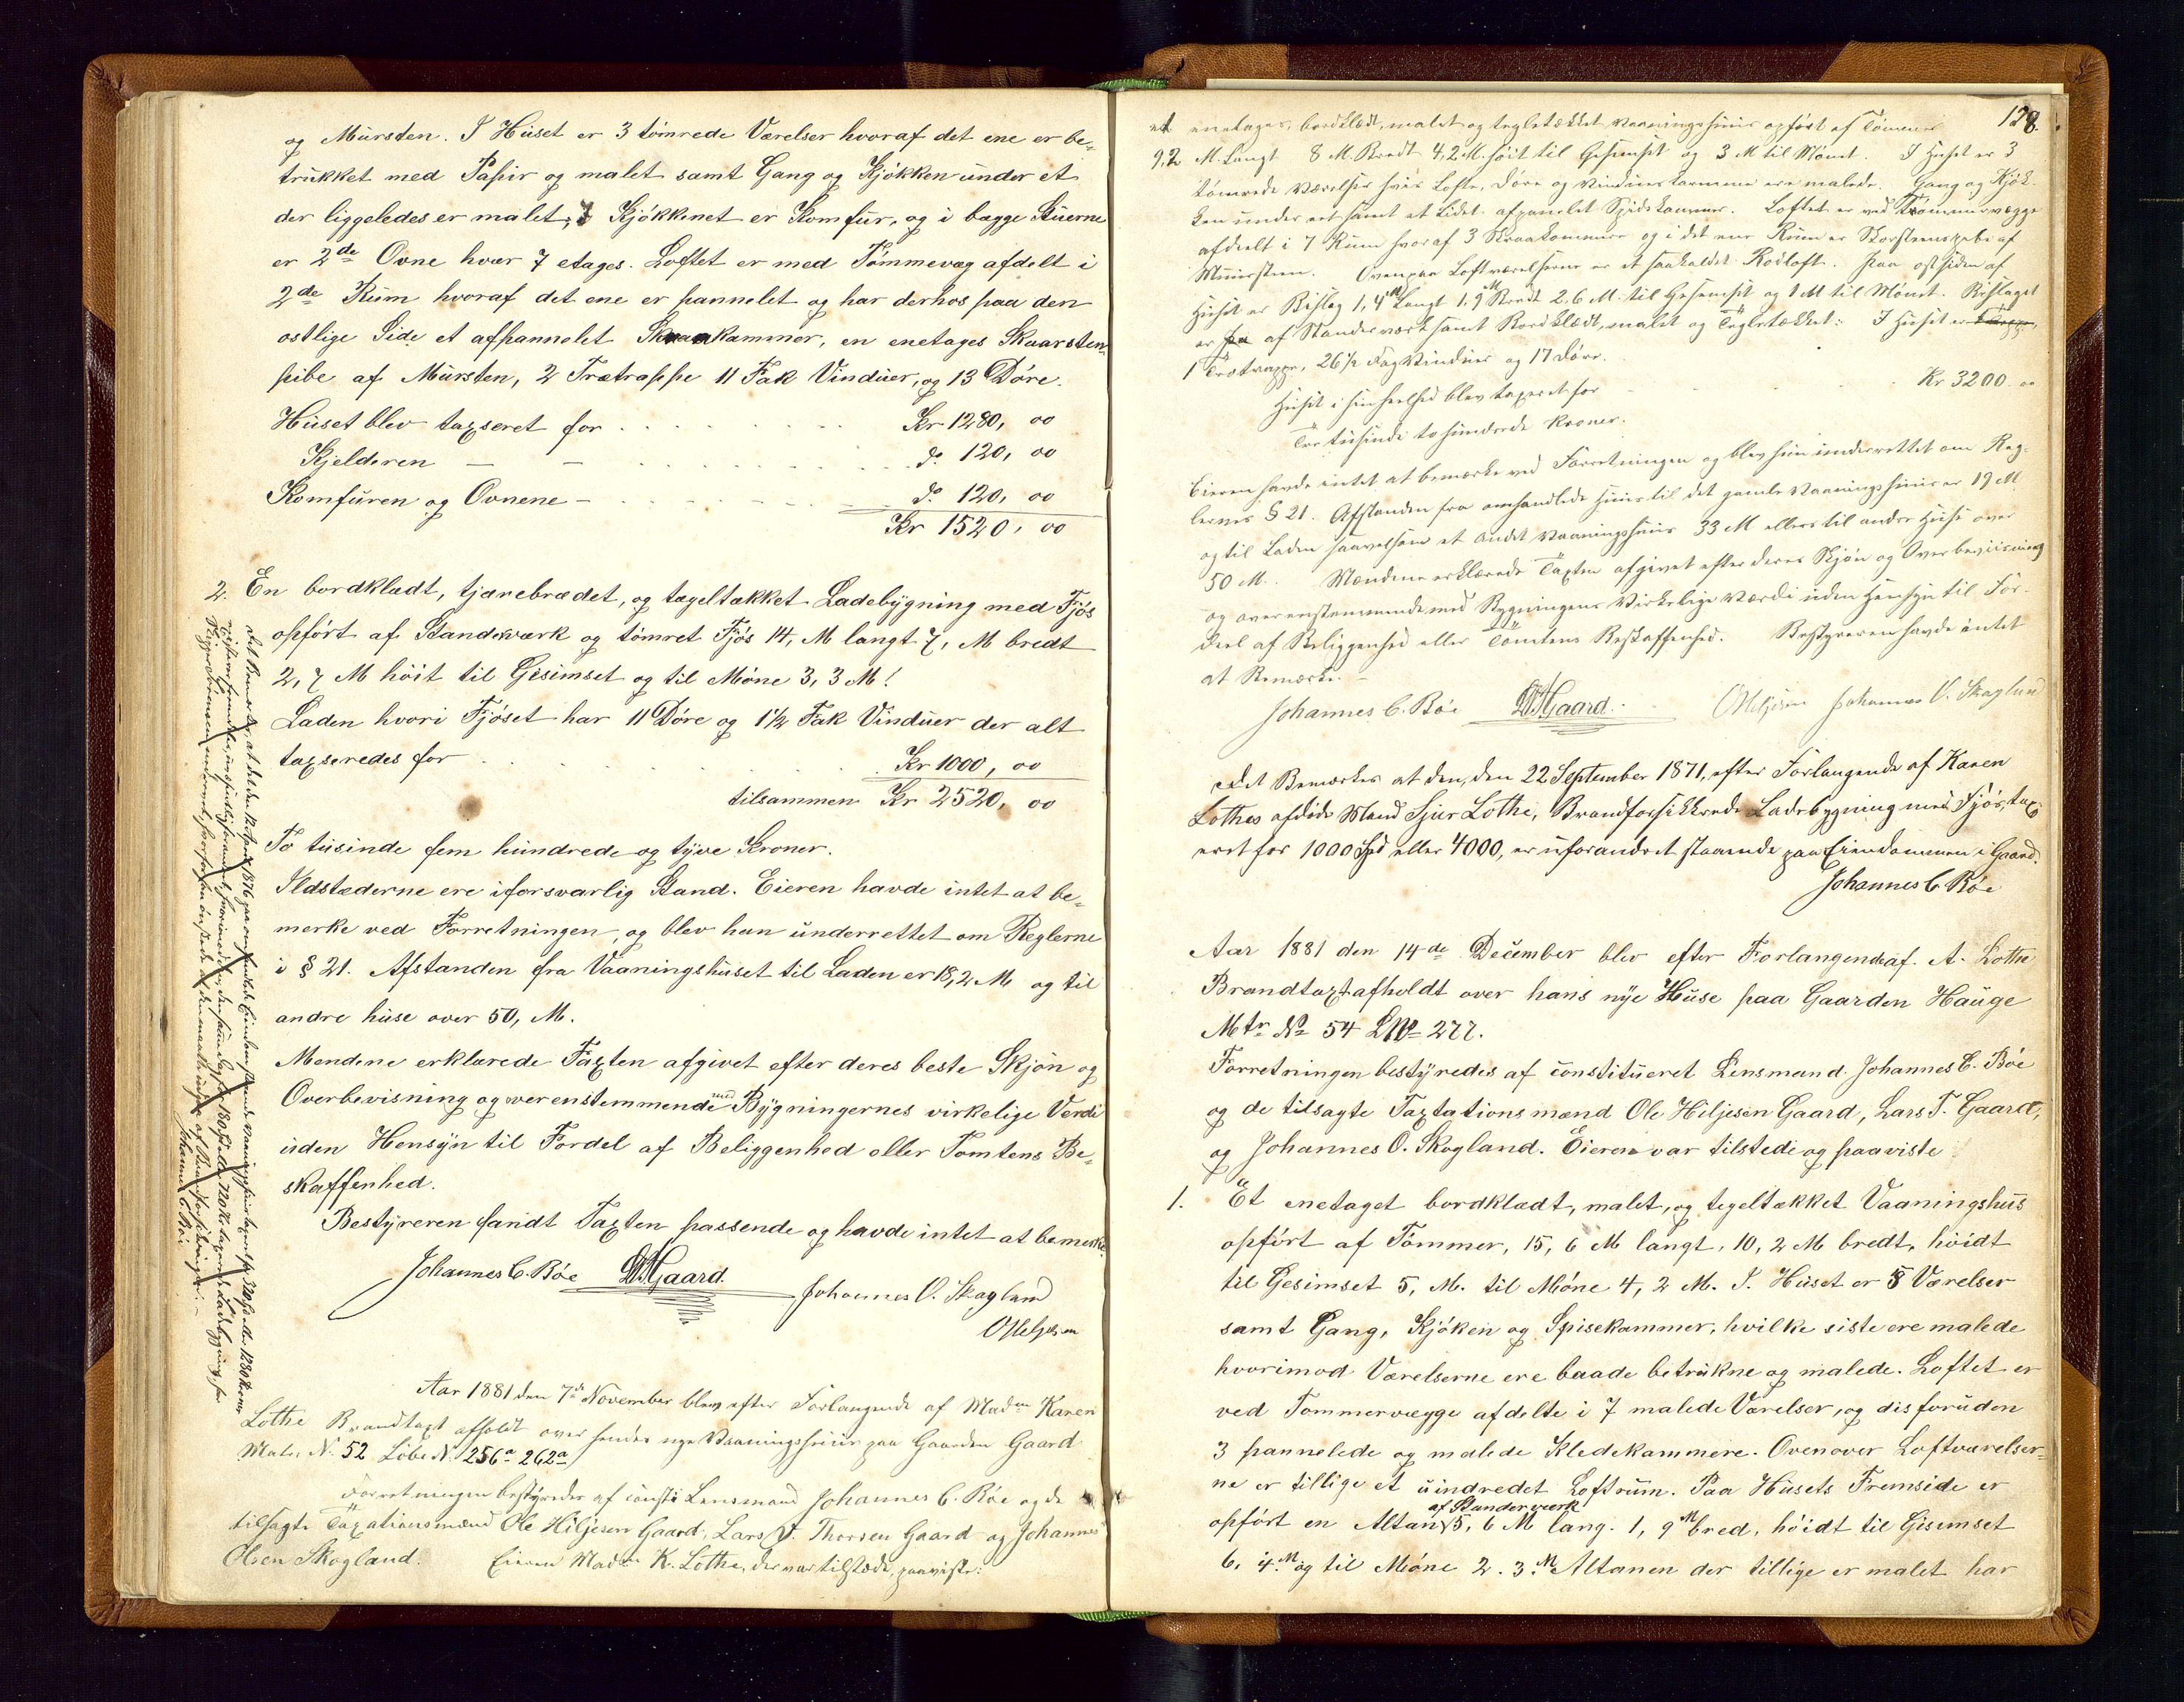 og Mursten. I Huset er 3 tømrede Værelser hvoraf det ene er be„
trukket med Papir og malet samt Gang og Kjøkken under et
der liggeledes er malet, I Kjøkkenet er Komfur, og i bægge Stuerne
er 2de Ovne hvær 7 etages. Loftet er med Tømmevæg afdelt i
2de Rum hvoraf det ene er pannelet og har derhos paa den
ostlige Side et afpannelet Skraakammer, en enetages Skaarsten„
pibe af Mursten, 2 Trætrappe 11 Fak Vinduer, og 13 Døre.
Huset blev taxseret for Kr 1280, 00
Kjelderen — — do 120, 00
Komfuren og Ovnene — do 120, 00
Kr 1520, 00
2. En bordklædt, tjærebrædet, og tægeltækket Ladebygning med Fjøs
opført af Standværk og tømret Fjøs 14, M langt 7, M bredt
2,7 M høit til Gesimset og til Møne 3,3 M!
Laden hvori Fjøset har 11 Døre og 1½ Fak Vinduer der alt
taxseredes for Kr 1000, 00
tilsammen Kr 2520, 00
To tusinde fem hundrede og tyve Kroner.
Ildstæderne ere iforsvarlig Stand. Eieren havde intet at be„
merke ved Forretningen, og blev han underrettet om Reglerne
i § 21. Afstanden fra Vaaningshuset til Laden er 18,2 M og til
andre huse over 50, M.
Mendene erklærede Taxten afgivet efter deres beste Skjøn og
Overbevisning og overenstemmende med Bygningernes virkelige Verdi
uden Hensyn til Fordel af Beliggenhed eller Tomtens Be„
skaffenhed.
Bestyreren fandt Taxten passende og havde intet at bemerke
Johannes C. Bøe LTGaard. Johannes O. Skogland
OHiljesen
Aar 1881 den 7de November blev efter Forlangende af Madm Karen
Lothe Brandtaxt afholdt over hendes nye Vaaningshuus paa Gaarden Gaard
Matr. No 52 Løbe No 256a 262a
Forretningen bestyredes af const: Lensmand Johannes C. Bøe og de
tilsagte Taxationsmænd Ole Hiljesen Gaard, Lars T. Thorsen Gaard og Johannes
Olsen Skogland. Eieren Madm K. Lothe, der var tilstæde, paaviste:
128.
et enetages, bordklædt, malet og tegltækket Vaaningshuus opført af Tømmer
9,2 M. Langt 8 M. Bredt 4,2 M. høit til Gesimset og 3 M til Mønet. I Huset er 3
tømrede Værelser hvis Lofte, Døre og Vindueskarmene ere malede. Gang og Kjøk„
ken under eet samt et Lidet afpanelet Spisekammer. Loftet er ved Tømmervægge
afdeelt i 7 Rum hvoraf 3 Kraakammere og i det ene Rum er Skorsteenspibe af
Muursteen. Ovenpaa Loftværelserne er et saakaldet Rodloft. Paa østsiden af
Huset er Bislag 1,4M Langt 1.9M Bredt 2.6 M. til Gesemset og 1 M til Mønet. Bislaget
er paa af Standerværk samt Bordklædt, malet og Tegltækket: I Huset er Trappe
1 Trætrappe, 26½ Fag Vinduer og 17 Døre.
Huset i sin heelhed blev taxeret for Kr 3200. 00
Tre tusinde to hundrede Kroner.
Eieren havde intet at bemærke ved Forretningen og blev hun underrettet om Reg„
lernes § 21. Afstanden fra omhandlede Huus til det gamle Vaaningshuus er 19 M
og til Laden saavelsom et andet Vaaningshuus 33 M ellers til andre Huse over
50 M. Mændene erklærede Taxten afgivet efter deres Skjøn og Overbeviisning
og overenstemmende med Bygningens Virkelige Værdi uden Hensyn til For„
deel af Beliggenhed eller Tomtens Beskaffenhed. Bestyreren havde intet
at Bemærke.
Johannes C. Bøe LTGaard. OHiljesen Johannes O. Skogland
Det Bemærkes at den, den 22 September 1871, efter Forlangende af Karen
Lothes afdøde Mand Sjur Lothe, Brandforsikkrede Ladebygning med Fjøs, tax„
eret for 1000 Spd eller 4000, er uforandret staaende paa Eiendommen i Gaard.
Johannes C Bøe
Aar 1881 den 14de December blev efter Forlangende af. A. Lothe
Brandtaxt afholdt over hans nye Huse paa Gaarden Hauge
Mtr No 54 LNo 277.
Forretningen bestyredes af constitueret Lensmand Johannes C. Bøe
og de tilsagte Taxtationsmænd Ole Hiljesen Gaard, Lars T. Gaard,
og Johannes O. Skogland. Eieren var tilstede og paaviste
1. Et enetaget bordklædt, malet, og tegeltækket Vaaningshus
opført af Tømmer, 15,6 M langt, 10,2 M bredt, høidt
til Gesimset 5, M. til Møne 4,2 M. I. Huset er 8 Værelser
samt Gang, Kjøken og Spisekammer, hvilke siste ere malede
hvorimod Værelserne ere baade betrukne og malede. Loftet er
ved Tommervægge afdelte i 7 malede Værelser, og disforuden
3 pannelede og malede Kledekammere. Ovenover Loftværelser„
ne er tillige et uindredet Loftrum. Paa Husets Fremside er
opført en Altan af Standerværk 5,6 M lang. 1,9M bred, høidt til Gisimset
6,4M og til Møne 2.3.M Altanen der tillige er malet har